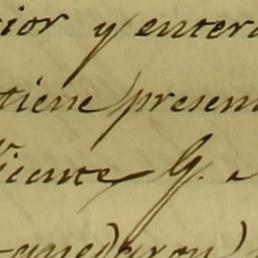 rior y entera
tiene presen
Vicente G. e
quedaron)